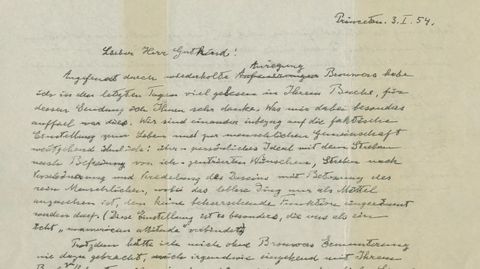 Princeton. 3. I. 54.
Lieber Herr Gutkind!
Anregung
Angefeuert durch wiederholte Brouwers habe
ich in den letzten Tagen viel gelesen in Ihrem Buche, für
dessen Sendung ich Ihnen sehr danke. Was mir dabei besonders
auffiel war dies. Wir sind einander inbezug auf die faktische
Einstellung zum Leben und zur menschlichen Gemeinschaft
weitgehend ähnlich: Ihr persönliches Ideal mit dem Streben
nach Befreiung von ich-zentrierten Wünschen, Streben nach
Verschönerung und Veredelung des Daseins mit Betonung des
rein Menschlichen, wobei das leblose Ding nur als Mittel
anzusehen ist, dem keine beherrschende Funktion eingeräumt
werden darf. (Diese Einstellung ist es besonders, die uns als ein
echt "unamerican attitude" verbindet)
Trotzdem hätte ich mich ohne Brouwers Ermunterung
nie dazu gebracht, mich irgendwie eingehend mit Ihrem